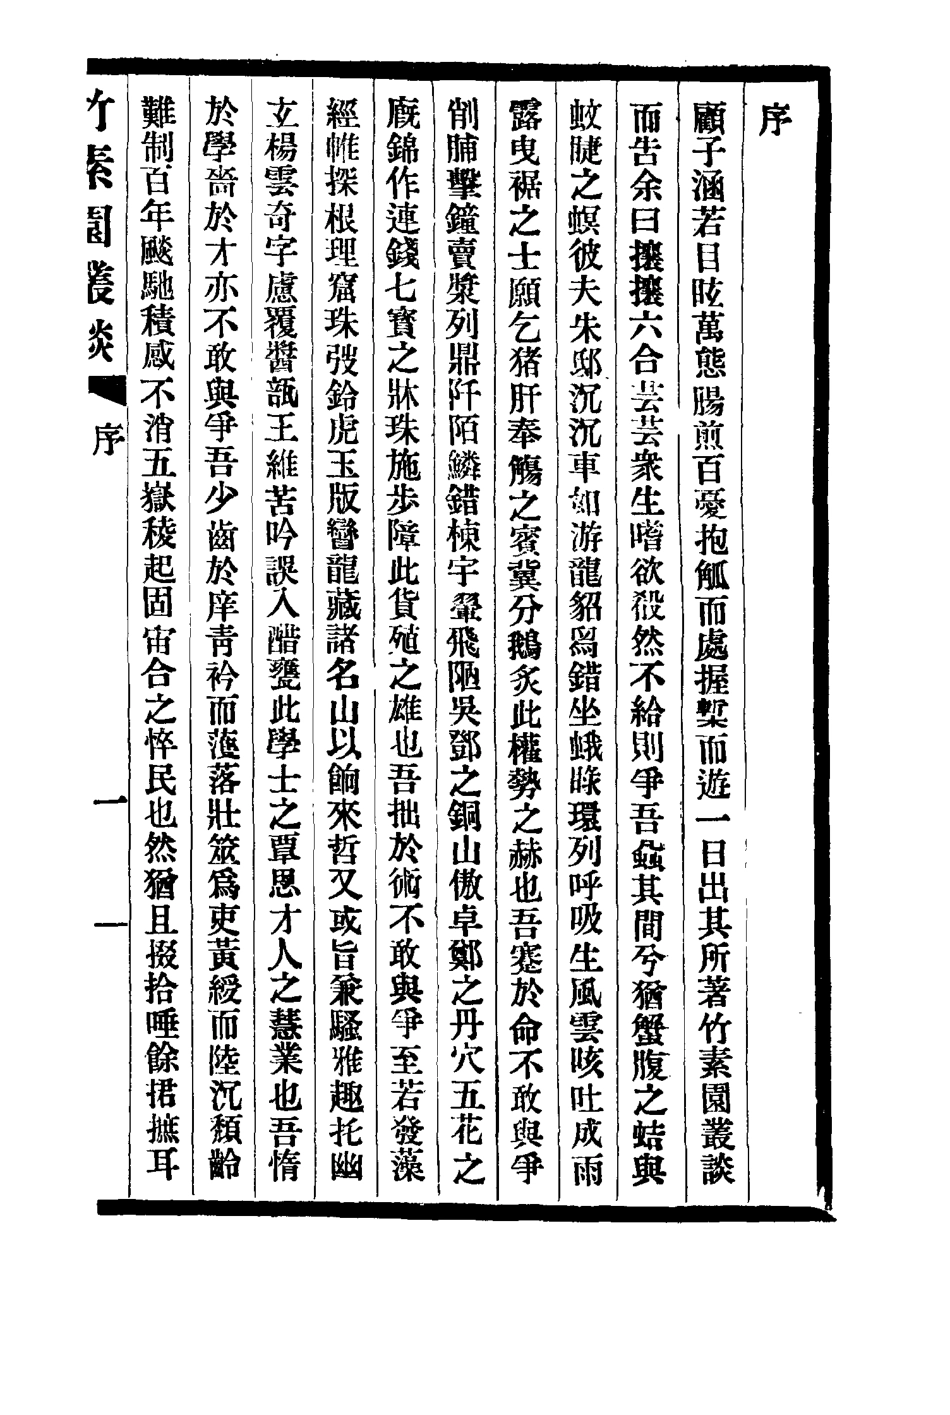 序
顧子涵若目眩萬態腸煎百憂抱觚而處握槧而遊一日出其所著竹素園叢談
而告余曰攘攘六合芸芸衆生嗜欲殺然不給則爭吾蝨其間兮猶蟹腹之蛣與
蚊睫之螟彼夫朱邸沉沉車如游龍貂舄錯坐蛾眉環列呼吸生風雲咳吐成雨
露曳裾之士願乞猪肝奉觴之賓冀分鵝炙此權勢之赫也吾蹇於命不敢與爭
削脯擊鐘賣漿列鼎阡陌鱗錯棟宇翬飛陋吳鄧之銅山傲卓鄭之丹穴五花之
廐錦作連錢七寶之牀珠施步障此貨殖之雄也吾拙於術不敢與爭至若發藻
經帷探根理窟珠弢鈴虎玉版彎龍藏諸名山以餉來哲又或旨兼騷雅趣托幽
玄楊雲奇字慮覆醬瓿王維苦吟誤入醋甕此學士之覃思才人之慧業也吾惰
於學嗇於才亦不敢與爭吾少齒於庠青衿而濩落壯筮爲吏黃綬而陸沉頹齡
難制百年飈馳積感不消五嶽稜起固宙合之悴民也然猶且掇拾唾餘捃摭耳
竹素園叢談 序 一 一